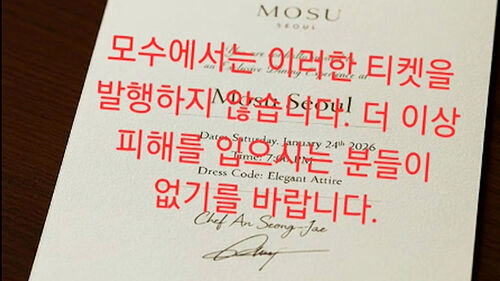 MOSU
SEOUL
모수에서는 이러한 티켓을
an Exclusive Dining Experience at
발행하지 않습니다. 더 이상
Mosu Seoul
Date: Saturday, January 24th 2026
피해를 입으시는 분들이
Time: 7:00 PM
Dress Code: Elegant Attire
없기를 바랍니다.
Chef An Seong-Jae